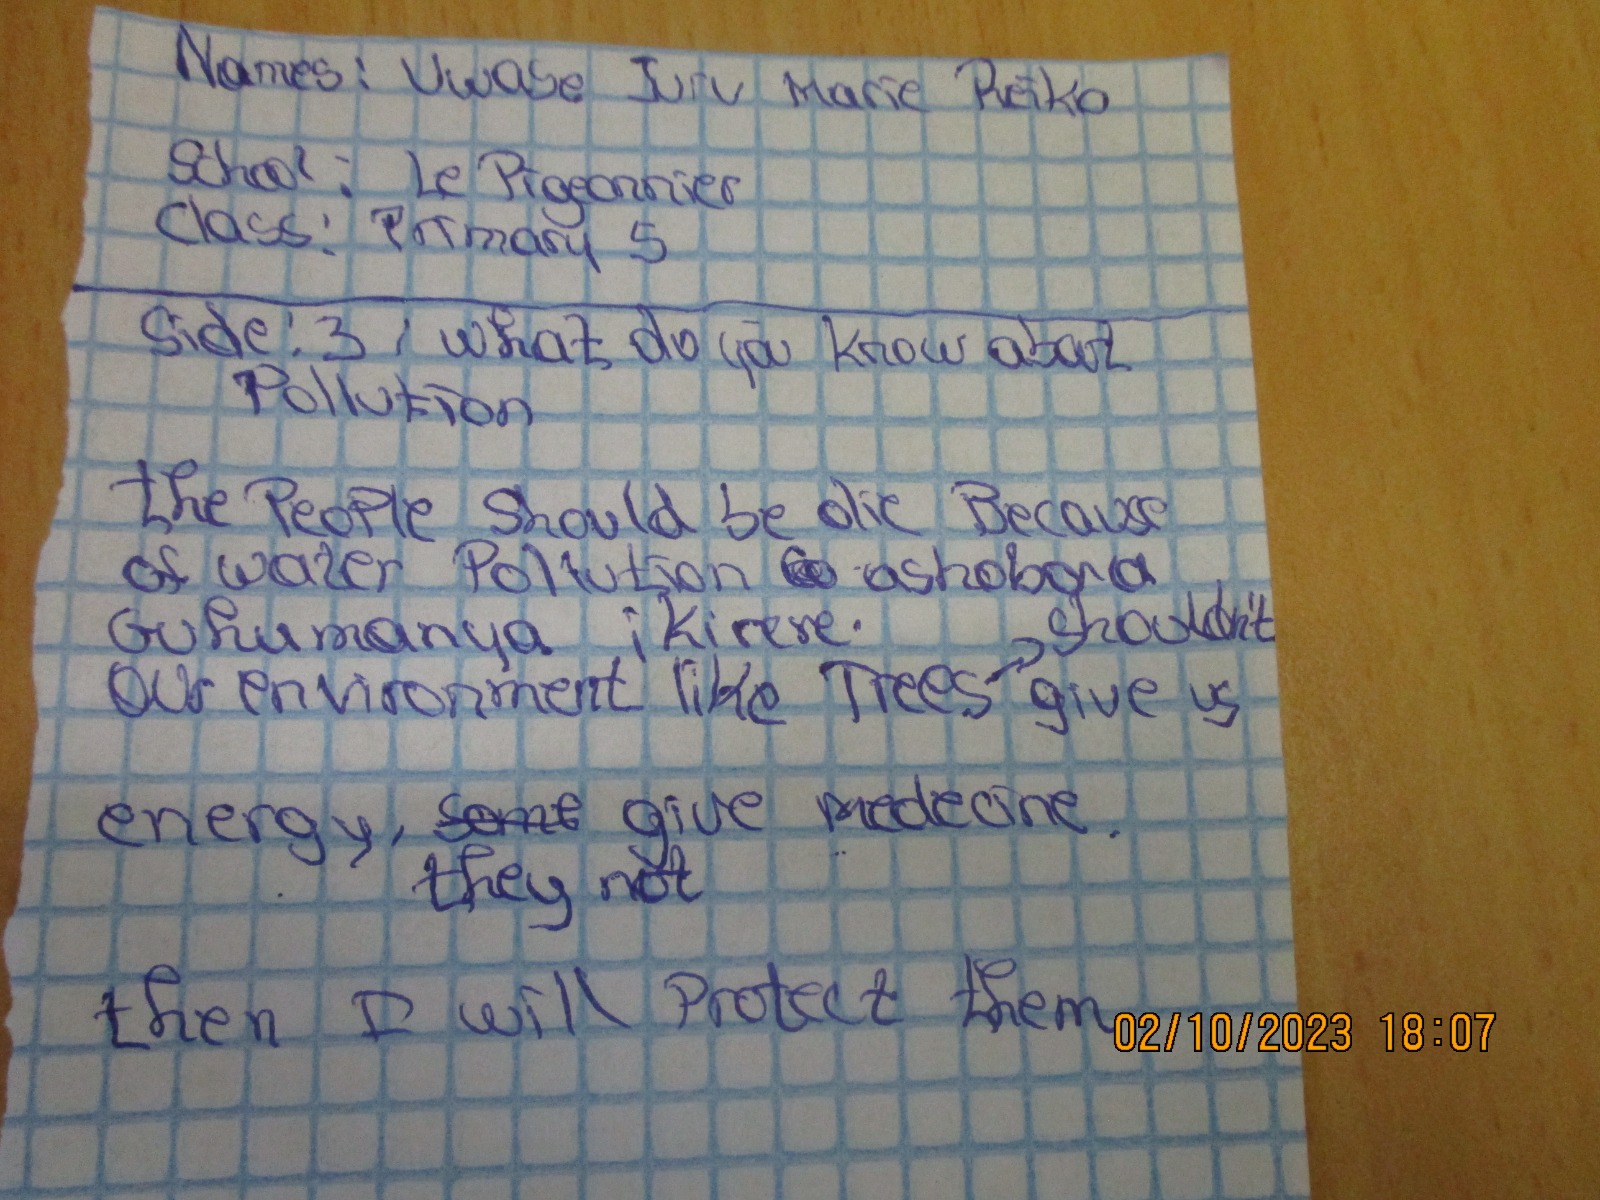 Names: Uwase Juru Marie Reiko
School: Le Pigeonnier
Class: Primary 5
Side: 3, what do you know about
Pollution
the People should be die Because
of water Pollution ashobora
Guhumanya ikirere.
shouldn't
Our environment like Trees give us
energy, some give medecine.
they not
then I will Protect them
02/10/2023 18:07